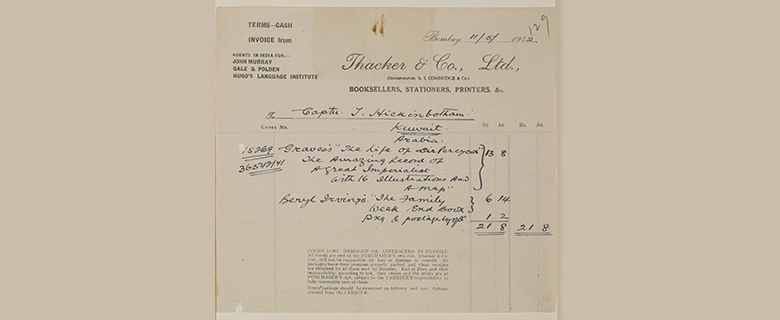 TERMS—CASH
INVOICE from
AGENTS IN INDIA FOR,—
JOHN MURRAY
GALE & POLDEN
HUGO'S LANGUAGE INSTITUTE
129
Bombay, 11/5/1942
Thacker & Co., Ltd.,
(Incorporating A. J. COMBRIDGE & Co.)
BOOKSELLERS, STATIONERS, PRINTERS, &c.
To Captn. T. Hickinbotham
Kuwait
Order No.
Arabia
Rs As. Rs As.
15269 Graves's "The Life of Sir Percy Cox" 13 8
The Amazing Record of
A Great Imperialist
With 16 Illustrations And
A map"
Beryl Irving's "The Family 6 14
Week End Book
Pkg & postage 1 2
21 8 21 8
GOODS LOST, DAMAGED OR ABSTRACTED IN TRANSIT.
All Goods are sent at the PURCHASER'S own risk. Thacker & Co.
Ltd., will not be responsible for loss or damage in transit. All
packages leave their premises properly packed and clean receipts
are obtained for all those sent by Steamer, Rail or Post, and their
responsibility, according to law, then ceases and the goods are at
PURCHASER'S risk, subject to the CARRIER'S responsibility to
take reasonable care of them.
Every package should be examined on delivery and any damage
claimed from the CARRIER.